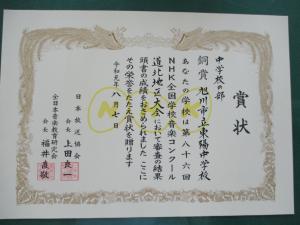 賞状
中学校の部
銅賞 旭川市立東陽中学校
あなたの学校は第八十六回
NHK全国学校音楽コンクール
道北地区大会において審査の結果
頭書の成績をおさめられました ここに
その栄誉をたたえ賞状を贈ります
令和元年八月七日
日本放送協会
会長 上田良一
全日本音楽教育研究会
会長 福井直敬